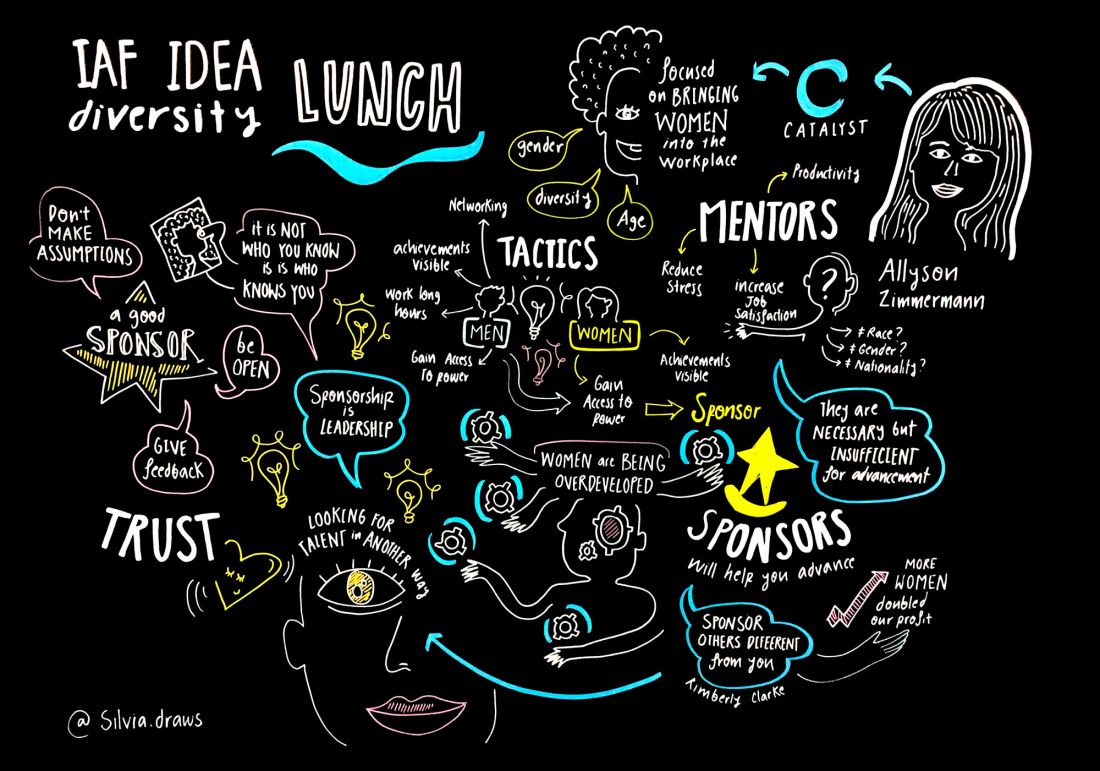 IAF IDEA
diversity
LUNCH
focused
on BRINGING
WOMEN
into the
Workplace
CATALYST
gender
diversity
Age
Allyson
Zimmermann
MENTORS
Productivity
Reduce
Stress
increase
Job
Satisfaction
?
≠ Race?
≠ Gender?
≠ Nationality?
They are
NECESSARY but
INSUFFICIENT
for advancement
TACTICS
Networking
achievements
visible
Work long
hours
Gain Access
To power
MEN
WOMEN
Achievements
visible
Gain
Access to
power
Sponsor
Don't
MAKE
ASSUMPTIONS
it is NOT
WHO YOU KNOW
is is WHO
KNOWS YOU
a good
SPONSOR
be
OPEN
GIVE
feedback
Sponsorship
is
LEADERSHIP
WOMEN are BEING
OVERDEVELOPED
TRUST
LOOKING FOR
TALENT in ANOTHER way
SPONSORS
will help you advance
SPONSOR
OTHERS DIFFERENT
from you
Kimberly Clarke
MORE
WOMEN
doubled
our profit
@ Silvia.draws